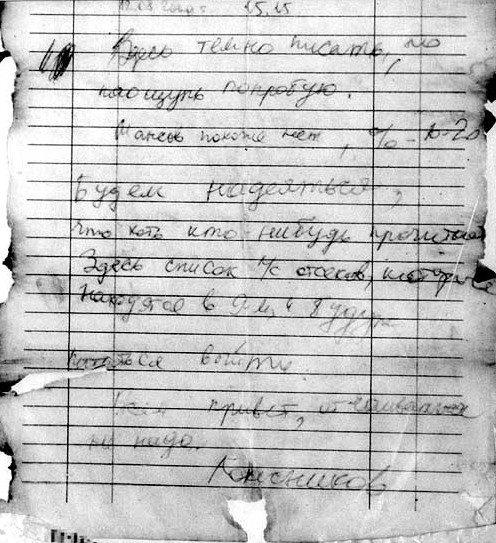 15.15
Здесь темно писать, но
наощупь попробую.
Шансов похоже нет, % – 10-20
Будем надеяться,
что хоть кто-нибудь прочитает
Здесь список л/с отсеков, которые
находятся в 9-м и будут
пытаться выйти.
Всем привет, отчаиваться
не надо.
Колесников